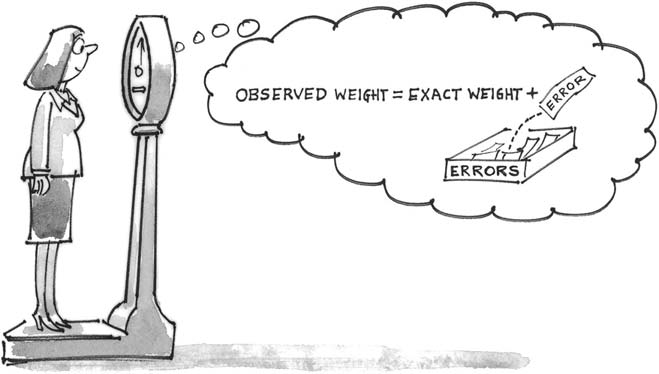 OBSERVED WEIGHT = EXACT WEIGHT + ERROR
ERRORS